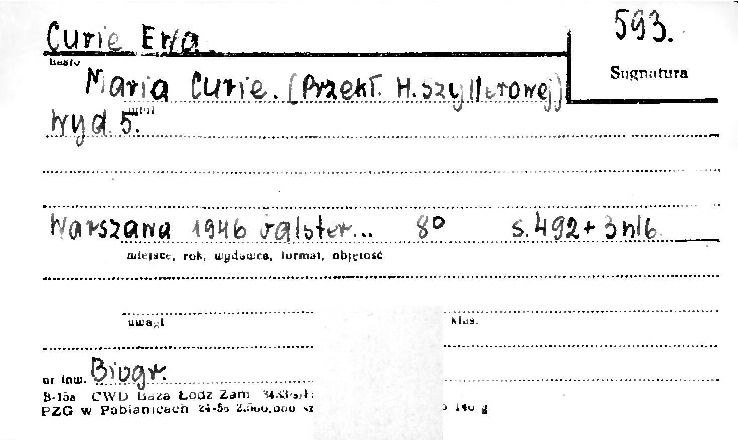 Curie Ewa
593.
hasło
Sygnatura
Maria Curie. (Przekł. H. Szyllerowej)
tytuł
Wyd 5.
Warszawa 1946 8° s. 492 + 3 nlb.
miejsce, rok, wydawca, format, objętość
uwagi klas.
nr inw. Biogr.
B-15a CWD Baza Łódź Zam
PZG w Pabianicach 24-56 2.500.000 sz 140 g